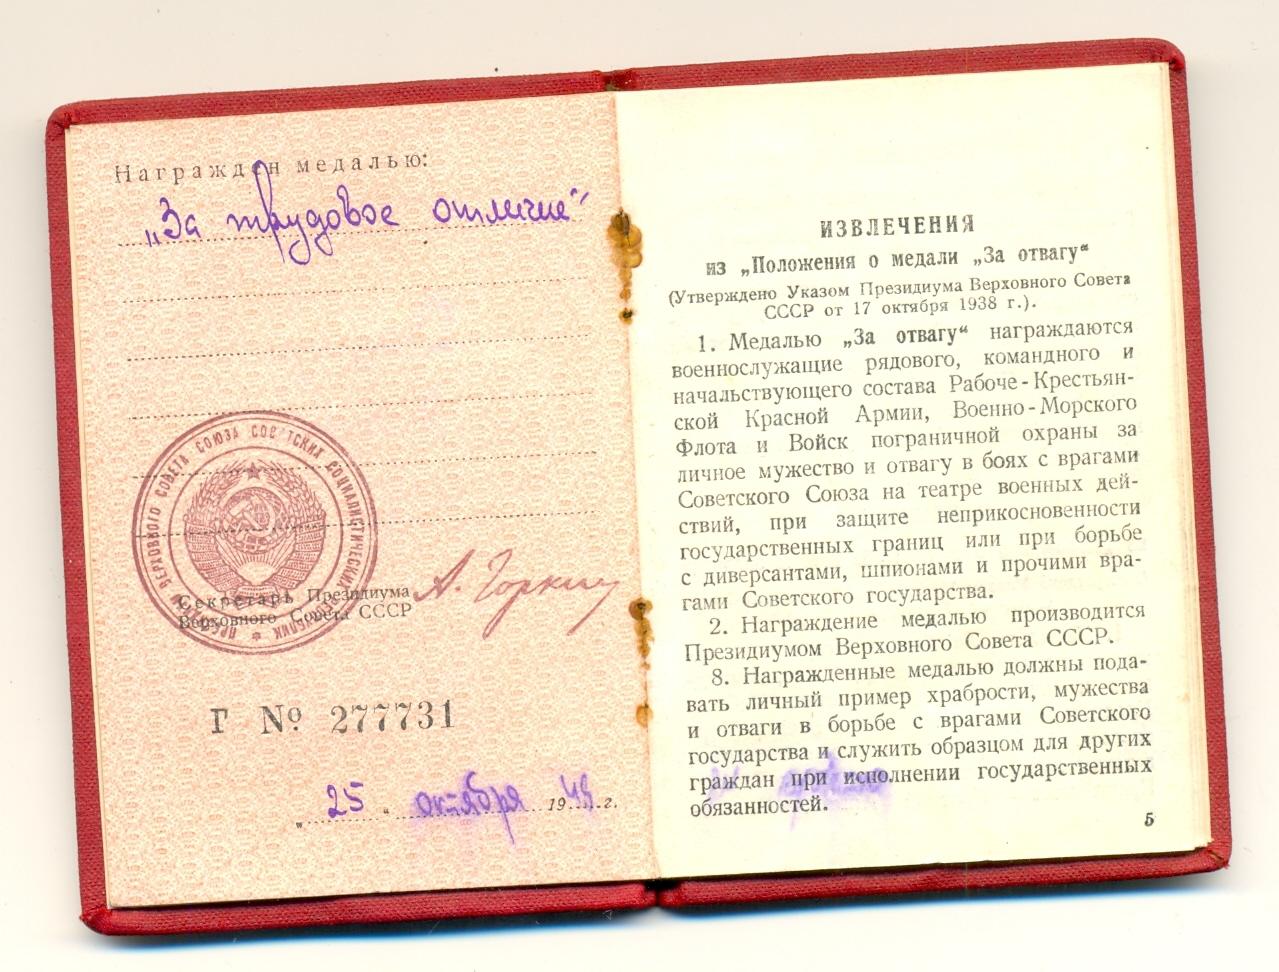 Награжден медалью:
„За трудовое отличие“
ВЕРХОВНОГО СОВЕТА СОЮЗА СОВЕТСКИХ СОЦИАЛИСТИЧЕСКИХ РЕСПУБЛИК
Секретарь Президиума
Верховного Совета СССР
А. Горкин
Г № 277731
„25“ октября 1948 г.
ИЗВЛЕЧЕНИЯ
из „Положения о медали „За отвагу“
(Утверждено Указом Президиума Верховного Совета
СССР от 17 октября 1938 г.).
1. Медалью „За отвагу“ награждаются
военнослужащие рядового, командного и
начальствующего состава Рабоче-Крестьян-
ской Красной Армии, Военно-Морского
Флота и Войск пограничной охраны за
личное мужество и отвагу в боях с врагами
Советского Союза на театре военных дей-
ствий, при защите неприкосновенности
государственных границ или при борьбе
с диверсантами, шпионами и прочими вра-
гами Советского государства.
2. Награждение медалью производится
Президиумом Верховного Совета СССР.
8. Награжденные медалью должны пода-
вать личный пример храбрости, мужества
и отваги в борьбе с врагами Советского
государства и служить образцом для других
граждан при исполнении государственных
обязанностей.
5